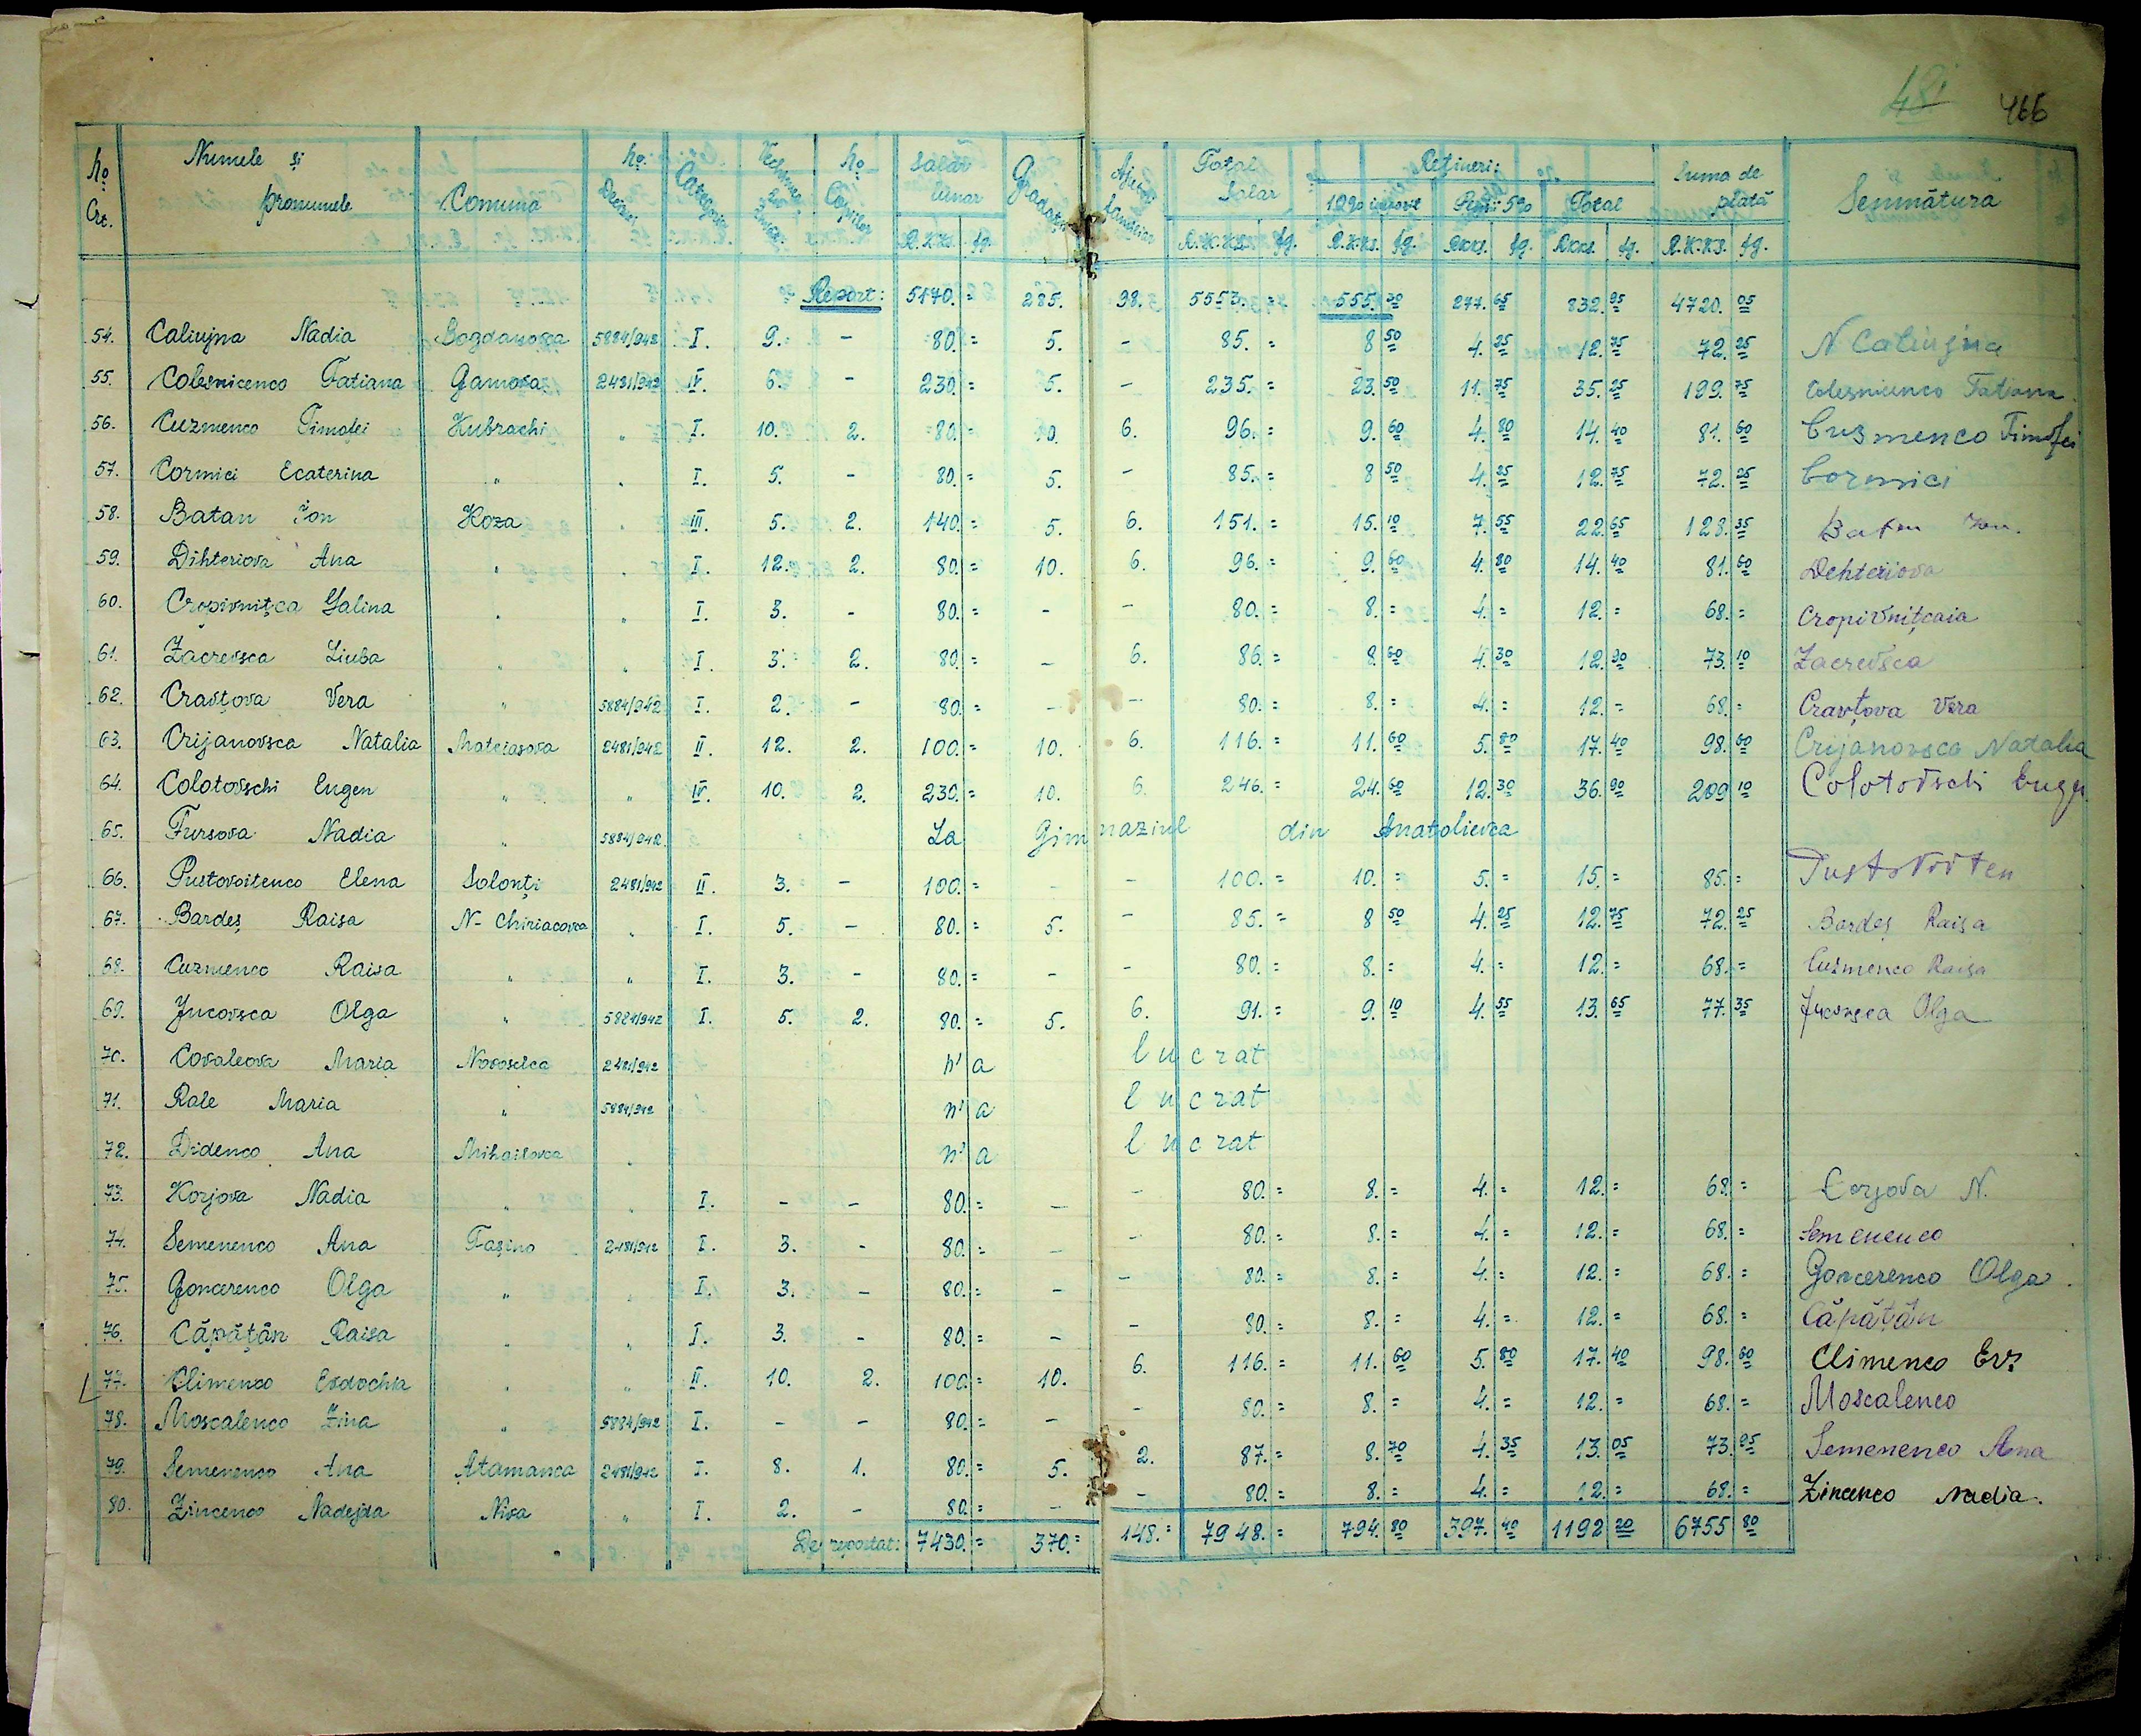 481 466
No Crt. Numele și pronumele Comuna No. Deciziei Categoria No Copiilor Salar lunar Gradația Ajutor familiar Total Salar Rețineri: Suma de plată Semnătura
10% impozit Pens. 5% Total
R.K.Ks. fg. R.K.Ks. fg. R.K.Ks. fg. RKKs. fg. RKKs. fg. R.K.KS. fg.
Report: 5170.= 285. 98. 5553.= 555.30 277.65 832.95 4720.05
54. Caliujna Nadia Bogdanovca 5884/942 I. 9. - 80.= 5. - 85.= 8 50 4.25 12.75 72.25 N Caliujna
55. Colesnicenco Tatiana Gamova 2481/942 IV. 6. - 230.= 5. - 235.= 23.50 11.75 35.25 199.75 Colesnicenco Tatiana
56. Cuzmenco Timofei Hubrachi " I. 10. 2. 80.= 10. 6. 96.= 9.60 4.80 14.40 81.60 Cuzmenco Timofei
57. Cormici Ecaterina " " I. 5. - 80.= 5. - 85.= 8 50 4.25 12.75 72.25 Cormici
58. Batan Ion Koza " III. 5. 2. 140.= 5. 6. 151.= 15.10 7.55 22.65 128.35 Batan Ion.
59. Dihteriova Ana " " I. 12. 2. 80.= 10. 6. 96.= 9.60 4.80 14.40 81.60 Dehteriova
60. Cropivnițca Galina " " I. 3. - 80.= - - 80.= 8.= 4.= 12.= 68.= Cropivnițcaia
61. Zacrevsca Liuba " " I. 3. 2. 80.= - 6. 86.= 8.60 4.30 12.90 73.10 Zacrevsca
62. Cravțova Vera " 5884/942 I. 2. - 80.= - - 80.= 8.= 4.= 12.= 68.= Cravțova Vera
63. Crijanovsca Natalia Mateiasova 2481/942 II. 12. 2. 100.= 10. 6. 116.= 11.60 5.80 17.40 98.60 Crijanovsca Natalia
64. Colotovschi Eugen " " IV. 10. 2. 230.= 10. 6. 246.= 24.60 12.30 36.90 209 10 Colotovschi Eugen
65. Fursova Nadia " 5884/942 La Gimnaziul din Anatolievca
66. Pustovoitenco Elena Solonți 2481/942 II. 3. - 100.= - - 100.= 10.= 5.= 15.= 85.= Pustovoiten
67. Bardeș Raisa N- Chiriacovca " I. 5. - 80.= 5. - 85.= 8 50 4.25 12.75 72.25 Bardeș Raisa
68. Cuzmenco Raisa " " I. 3. - 80.= - - 80.= 8.= 4.= 12.= 68.= Cuzmenco Raisa
69. Jucovsca Olga " 5884/942 I. 5. 2. 80.= 5. 6. 91.= 9.10 4.55 13.65 77.35 Jucovsca Olga
70. Covaleova Maria Novoselca 2481/942 n'a lucrat
71. Rale Maria " 5884/942 n'a lucrat
72. Didenco Ana Mihailovca " n'a lucrat
73. Korjova Nadia " " I. - - 80.= - - 80.= 8.= 4.= 12.= 68.= Corjova N.
74. Semenenco Ana Tașino 2481/942 I. 3. - 80.= - - 80.= 8.= 4.= 12.= 68.= Semenenco
75. Goncerenco Olga " " I. 3. - 80.= - - 80.= 8.= 4.= 12.= 68.= Goncerenco Olga
76. Căpățân Raisa " " I. 3. - 80.= - - 80.= 8.= 4.= 12.= 68.= Căpățân
77. Climenco Evdochia " " II. 10. 2. 100.= 10. 6. 116.= 11.60 5.80 17.40 98.60 Climenco Ev
78. Moscalenco Zina " 5884/942 I. - - 80.= - - 80.= 8.= 4.= 12.= 68.= Moscalenco
79. Semenenco Ana Atamanca 2481/942 I. 8. 1. 80.= 5. 2. 87.= 8.70 4.35 13.05 73.95 Semenenco Ana
80. Zincenco Nadejda Niva " I. 2. - 80.= - - 80.= 8.= 4.= 12.= 68.= Zincenco Nadia.
De reportat: 7430.= 370.= 148.= 7948.= 794.80 397.40 1192 20 6755 80